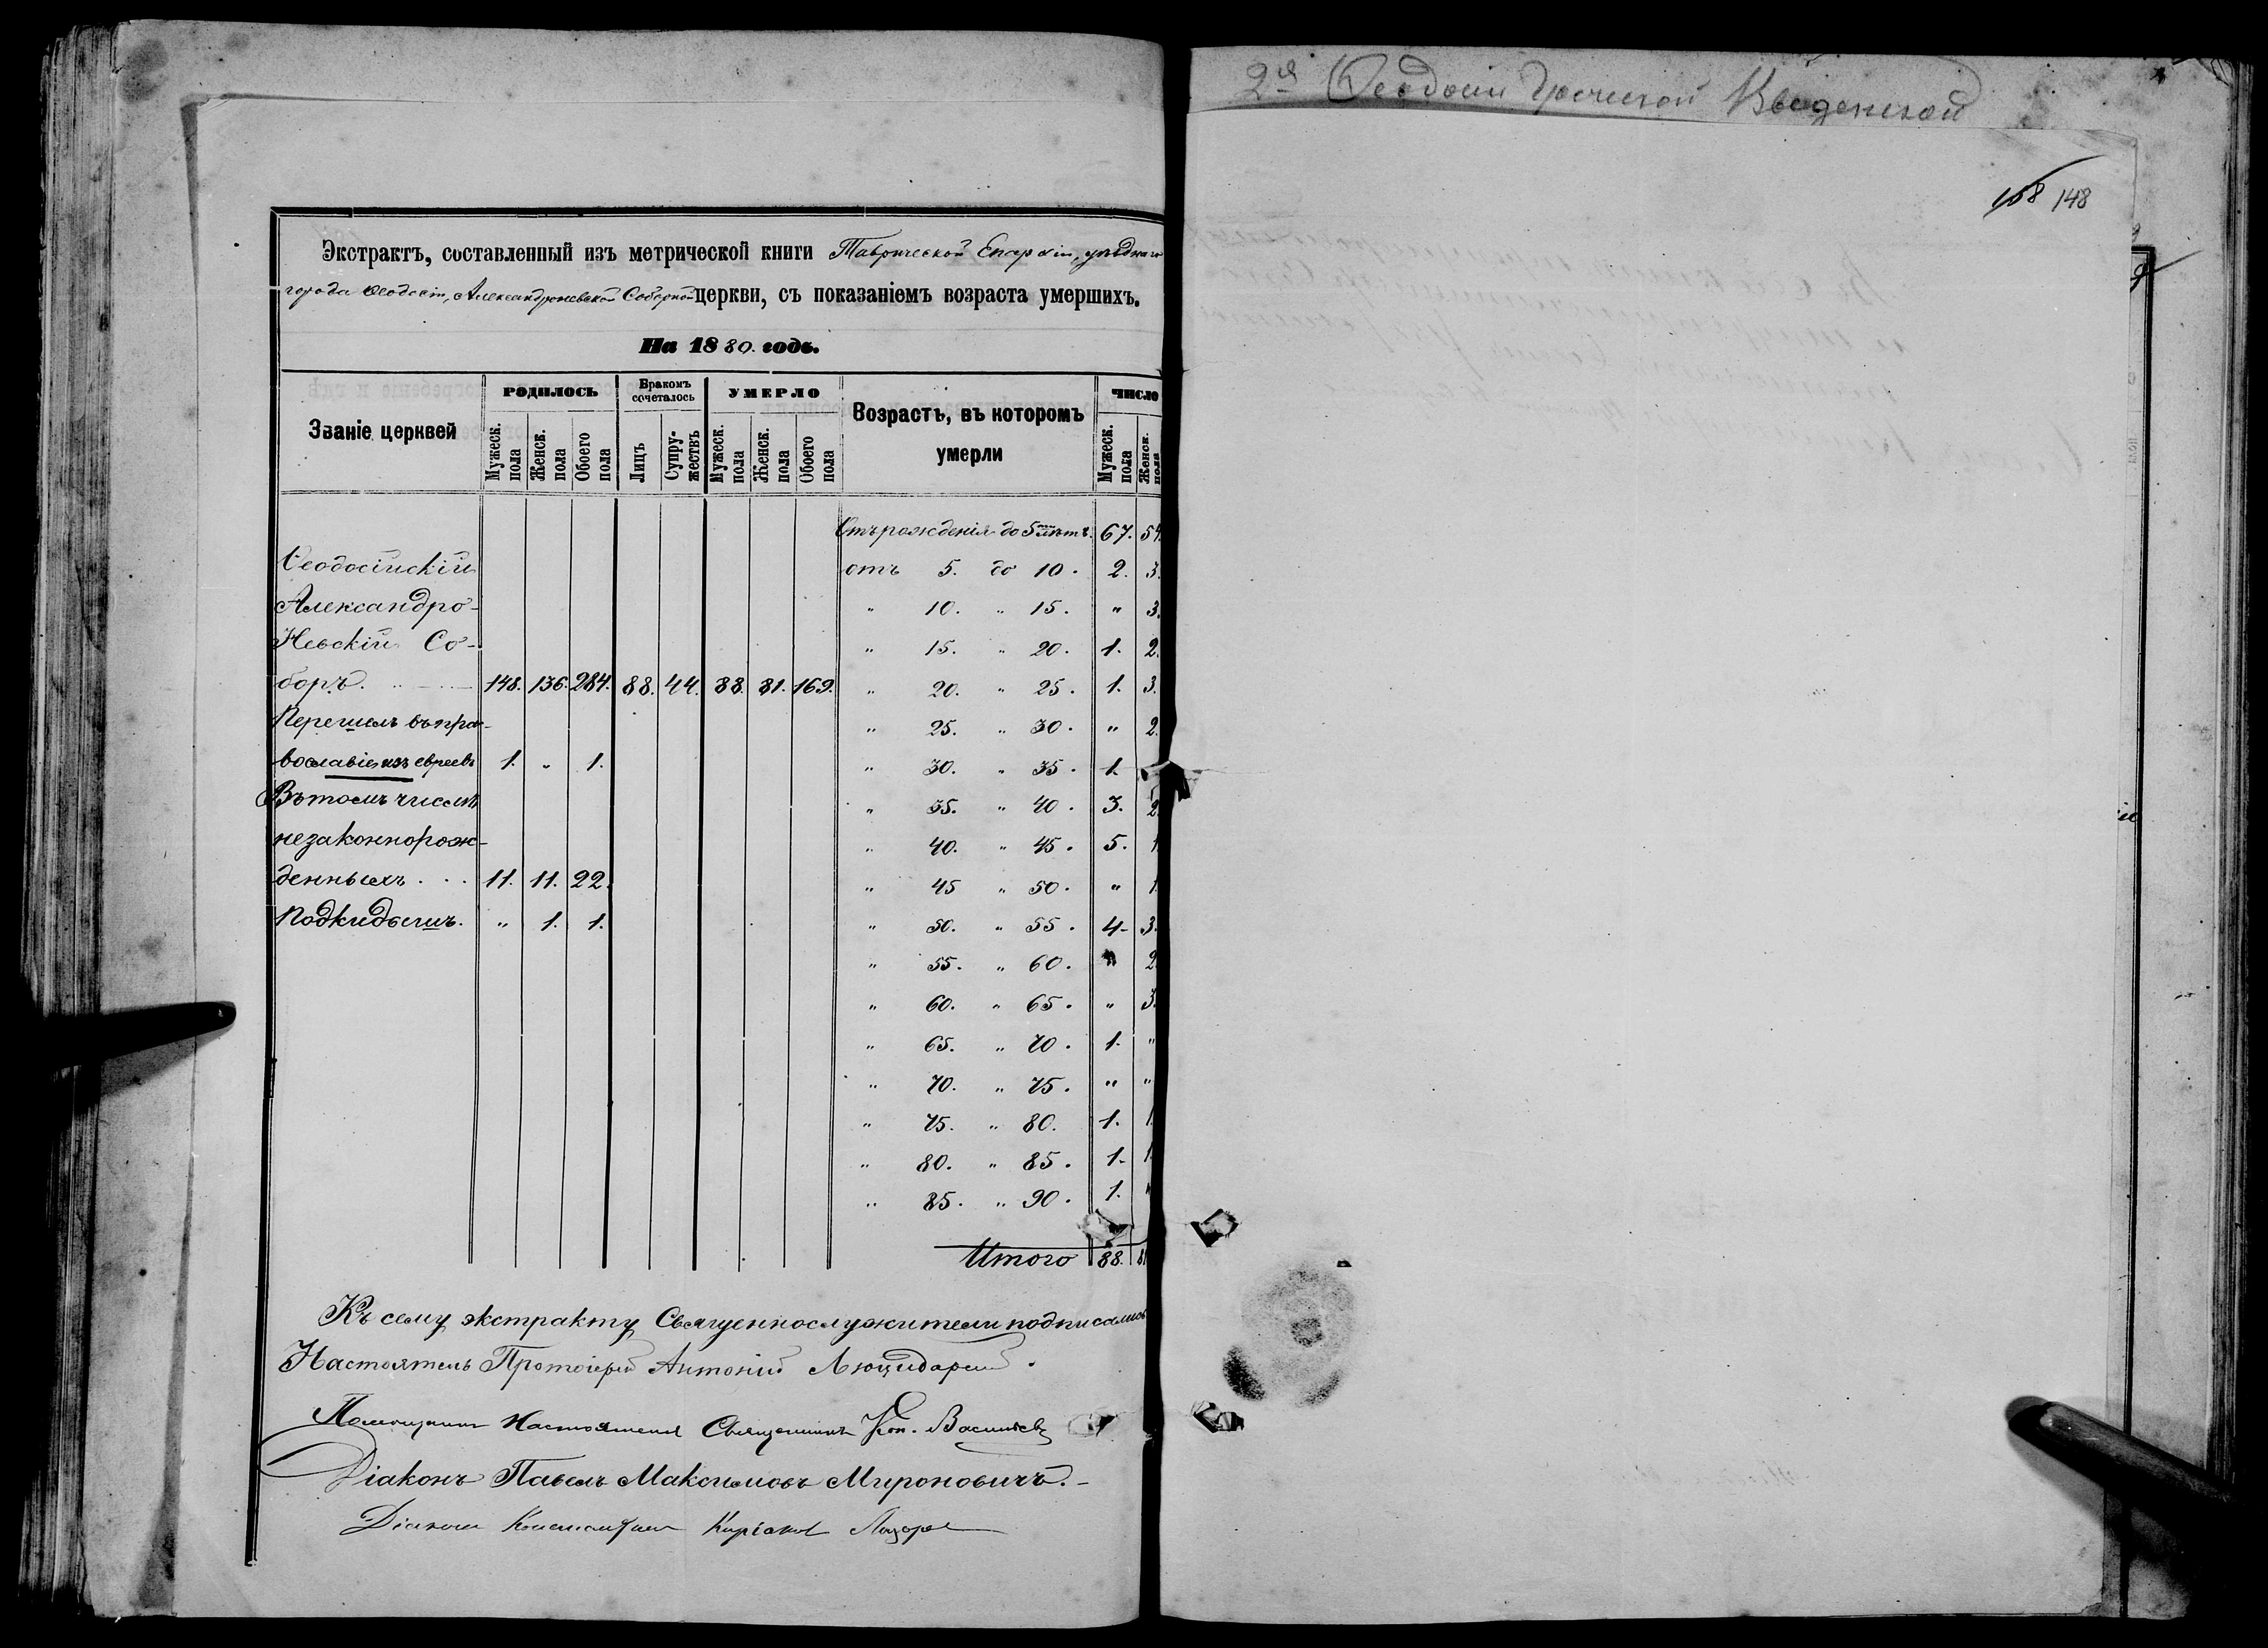 Экстрактъ, составленный изъ метрической книги Таврической Епархіи, уѣзднаго
города Ѳеодосіи, Александроневской Соборной церкви, съ показаніемъ возраста умершихъ.
На 1880. годъ.
Званіе церквей
РОДИЛОСЬ
Мужеск. пола
Женск. пола
Обоего пола
Бракомъ сочеталось
Лицъ
Супружествъ
УМЕРЛО
Мужеск. пола
Женск. пола
Обоего пола
Возрастъ, въ которомъ
умерли
ЧИСЛО
Мужеск. пола
Женск. пола
Отъ рожденія до 5ти лѣтъ. 67. 54.
Ѳеодосійскій отъ 5. до 10. 2. 3.
Александро- " 10. " 15. " 3.
Невскій Со- " 15. " 20. 1. 2.
боръ. 148. 136. 284. 88. 44. 88. 81. 169. " 20. " 25. 1. 3.
Перешелъ въ пра- " 25. " 30. " 2.
вославіе изъ евреевъ 1. " 1. " 30. " 35. 1.
Въ томъ числѣ " 35. " 40. 3. 2.
незаконнорож- " 40. " 45. 5. 1
денныхъ . . . 11. 11. 22. " 45 " 50. " 1.
Подкидышъ. " 1. 1. " 50. " 55. 4- 3.
" 55. " 60. " 2
" 60. " 65. " 3.
" 65. " 70. 1. "
" 70. " 75. " "
" 75. " 80. 1. 1.
" 80. " 85. 1. 1.
" 85. " 90. 1. "
Итого 88. 81
Къ сему экстракту Священнослужители подписались
Настоятель Протоіерей Антоній Люцидарскій.
Помощникъ Настоятеля Священникъ Кон. Васильевъ
Діаконъ Павелъ Максимовъ Мироновичъ.-
Діаконъ Константинъ Киріаковъ
2й Ѳеодосіи Греческой Введенской
158 148